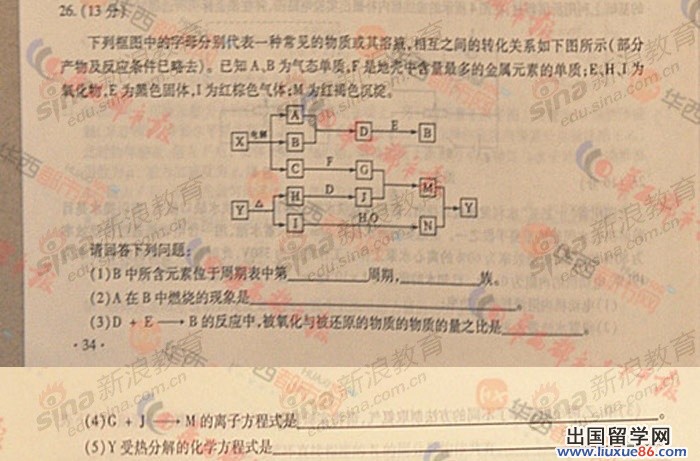 26. (13分)
下列框图中的字母分别代表一种常见的物质或其溶液,相互之间的转化关系如下图所示(部分
产物及反应条件已略去)。已知A、B为气态单质,F是地壳中含量最多的金属元素的单质;E、H、I为
氧化物,E为黑色固体,I为红棕色气体;M为红褐色沉淀。
A
X 电解 B D E B
C F G
M
Y △ H D J Y
I H₂O N
请回答下列问题:
(1)B中所含元素位于周期表中第 周期, 族。
(2)A在B中燃烧的现象是 。
(3)D + E ⟶ B的反应中,被氧化与被还原的物质的物质的量之比是 。
·34·
(4)G + J ⟶ M的离子方程式是 。
(5)Y受热分解的化学方程式是
sina新浪教育
edu.sina.com.cn
华西都市报
出国留学网
www.liuxue86.com